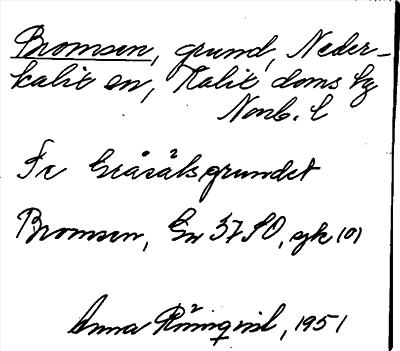 Bromsen, grund, Neder-
kalix sn, Kalix doms hg
Norrb. l
Fr Gråsälsgrundet
Bromsen, Gsk 3790, sjk 101
Anna Rönnqvist, 1951